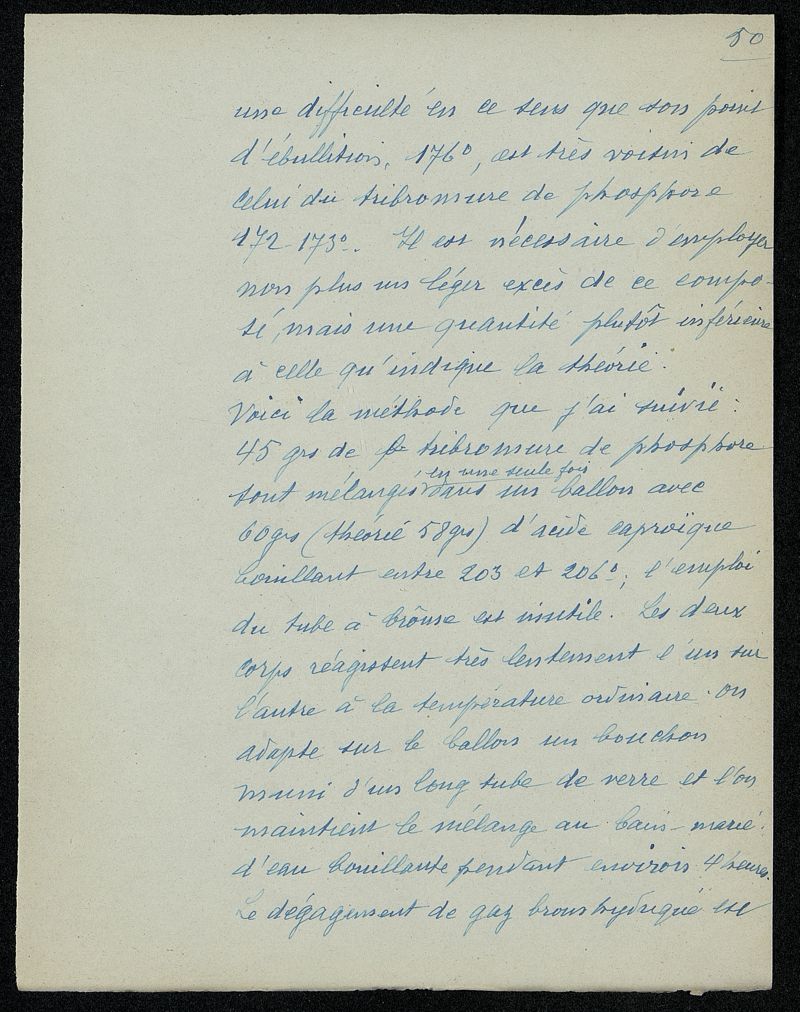 50
une difficulté en ce sens que son point
d'ébullition, 176°, est très voisin de
celui du tribromure de phosphore
172-173°. Il est nécessaire d'employer
non plus un léger excès de ce compo-
sé, mais une quantité plutôt inférieure
à celle qu'indique la théorie.
Voici la méthode que j'ai suivie :
45 grs de tribromure de phosphore
en une seule fois
sont mélangés dans un ballon avec
60 grs (théorie 58 grs) d'acide caproïque
bouillant entre 203 et 206°; l'emploi
du tube à brôme est inutile. Les deux
corps réagissent très lentement l'un sur
l'autre à la température ordinaire. On
adapte sur le ballon un bouchon
muni d'un long tube de verre et l'on
maintient le mélange au bain-marie
d'eau bouillante pendant environ 4 heures.
Le dégagement de gaz bromhydrique est